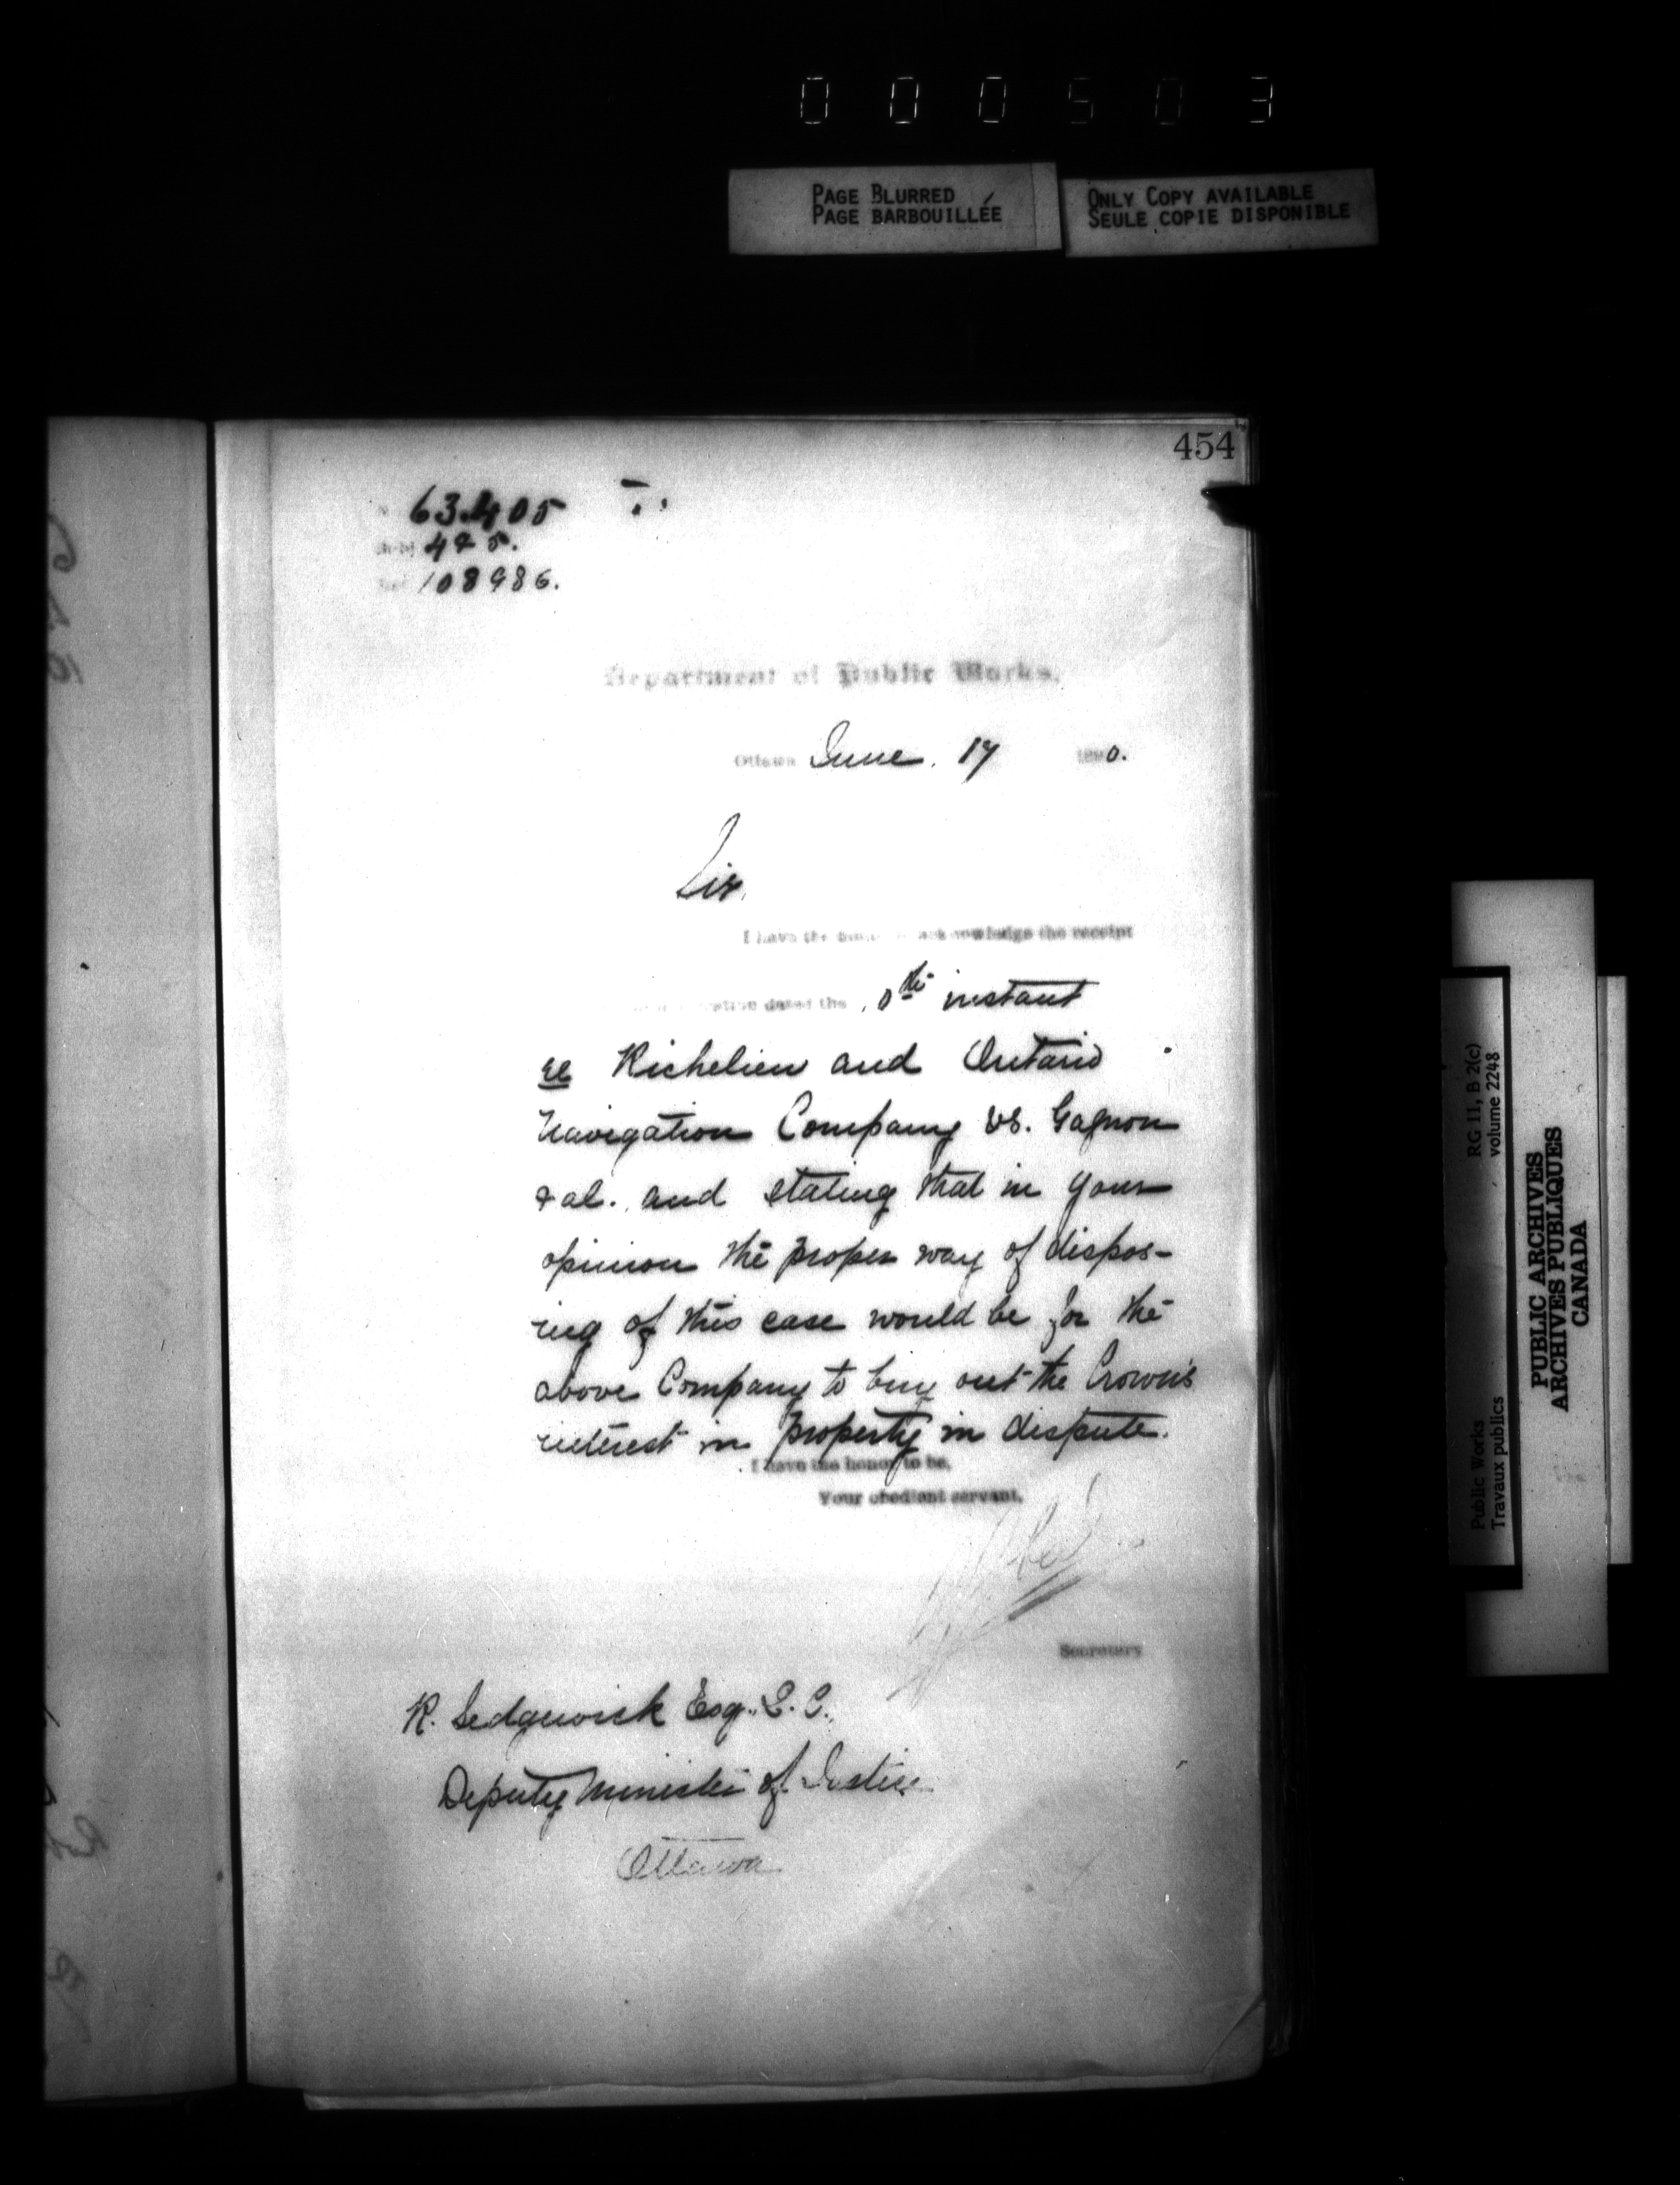 000503
PAGE BLURRED
PAGE BARBOUILLÉE
ONLY COPY AVAILABLE
SEULE COPIE DISPONIBLE
454
63.405
108986.
Department of Public Works.
Ottawa June. 17 1890.
Sir,
I have the honor to acknowledge the receipt
dated the 10th instant
re Richelieu and Ontario
Navigation Company vs. Gagnon
& al. and stating that in your
opinion the proper way of dispos-
ing of this case would be for the
above Company to buy out the Crown's
interest in property in dispute.
I have the honor to be,
Your obedient servant,
Secretary
R. Sedgewick Esq. Q. C.
Deputy Minister of Justice
Ottawa
Public Works
Travaux publics
RG 11, B 2(c)
volume 2248
PUBLIC ARCHIVES
ARCHIVES PUBLIQUES
CANADA